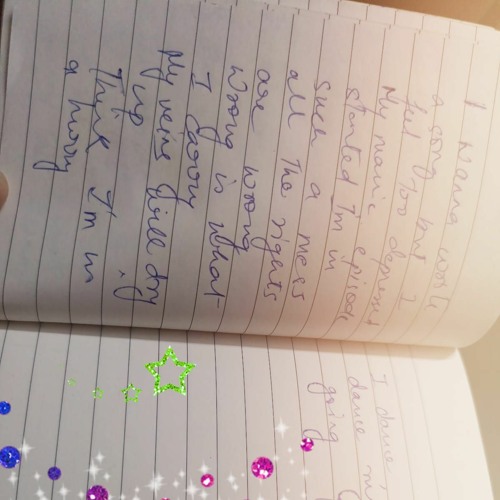 I wanna write
a song but I
feel too depressed
My manic episode
started I'm in
such a mess
all the rights
are wrong
Wrong is what
I carry
My veins will dry
up
Think I'm in
a hurry
I dance
dance
going